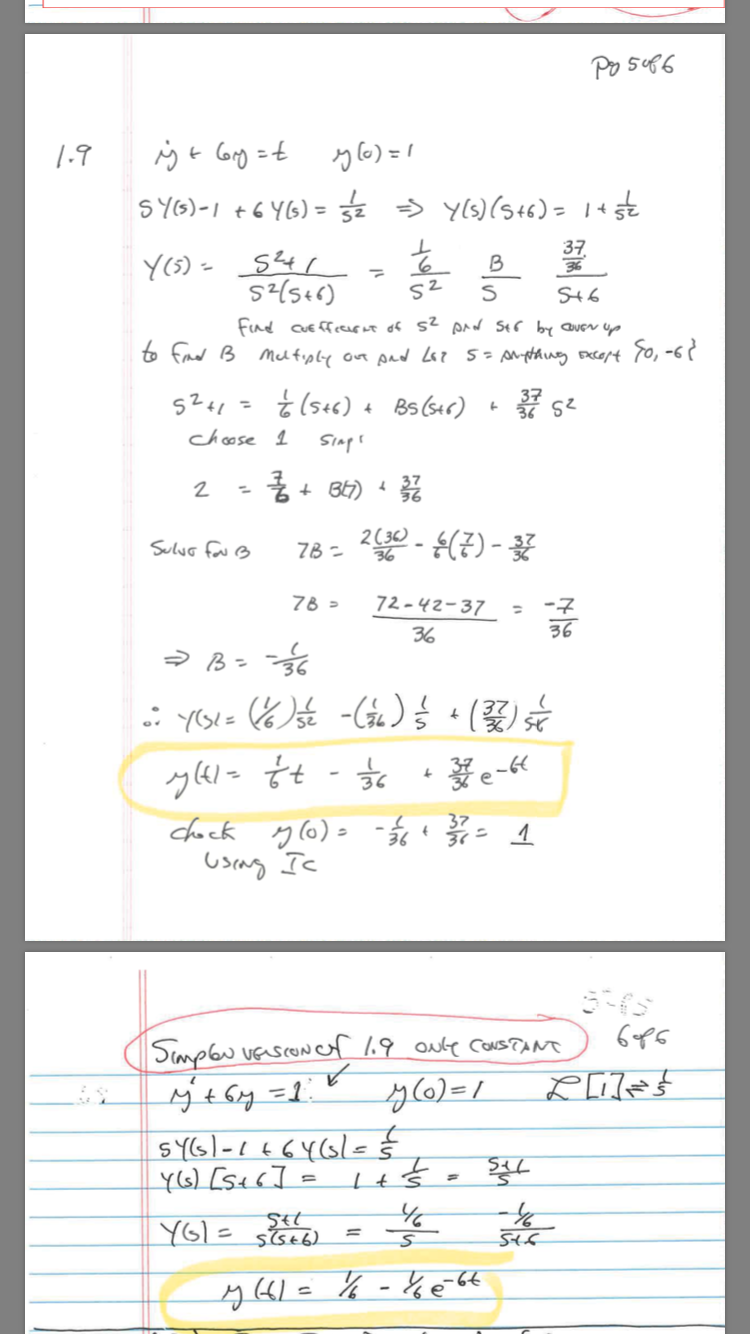 Pg 5 of 6
1.9 ẏ + 6y = t y(0) = 1
SY(s) - 1 + 6Y(s) = 1/s² ⇒ Y(s)(s+6) = 1 + 1/s²
Y(s) = (s²+1)/(s²(s+6)) = (1/6)/s² B/s (37/36)/(s+6)
Find coefficient of s² and s+6 by cover up
to find B multiply out and let s = anything except {0, -6}
s²+1 = 1/6 (s+6) + Bs(s+6) + 37/36 s²
choose 1
2 = 7/6 + B(7) + 37/36
Solve for B 7B = 2(36)/36 - 6/6(7/6) - 37/36
7B = (72-42-37)/36 = -7/36
⇒ B = -1/36
∴ Y(s) = (1/6)1/s² - (1/36)1/s + (37/36)
y(t) = 1/6 t - 1/36 + 37/36 e^-6t
check y(0) = -1/36 + 37/36 = 1
Using IC
6 of 6
Simpler version of 1.9 only constant
y' + 6y = 1 y(0) = 1 ℒ[1] ⇌ 1/s
sY(s) - 1 + 6Y(s) = 1/s
Y(s)[s+6] = 1 + 1/s = (s+1)/s
Y(s) = (s+1)/(s(s+6)) = (1/6)/s (-1/6)/(s+6)
y(t) = 1/6 - 1/6 e^-6t